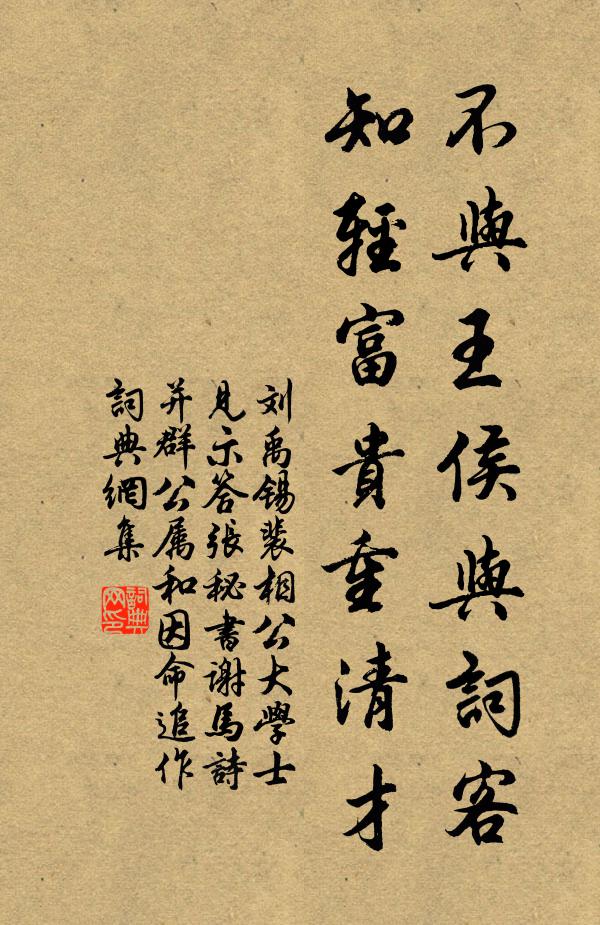 不與王侯與詞客
知輕富貴重清才
刘禹锡裴相公大學士
見示答張秘書谢馬詩
并群公属和因命追作
詞典網集
詞典网印